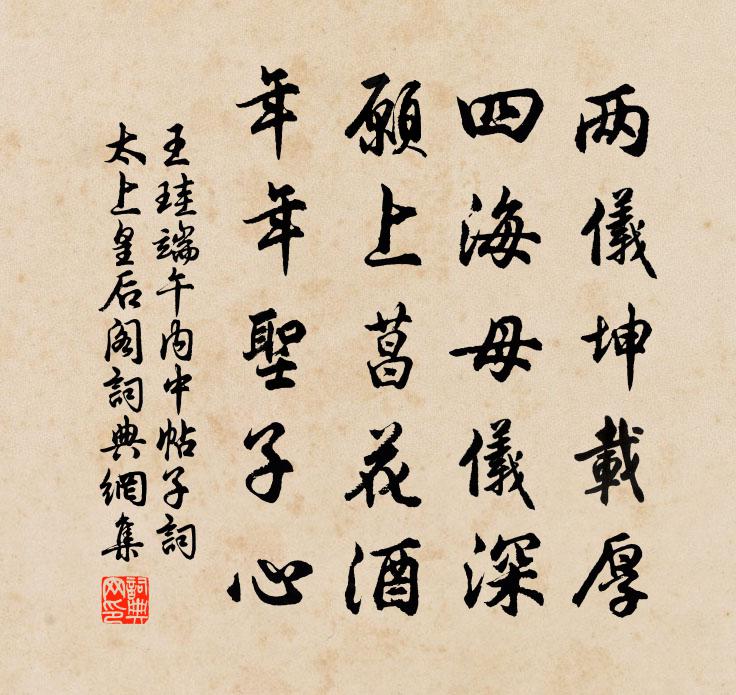 两儀坤載厚
四海母儀深
願上菖花酒
年年聖子心
王珪端午内中帖子詞
太上皇后阁詞典網集
詞典
网印